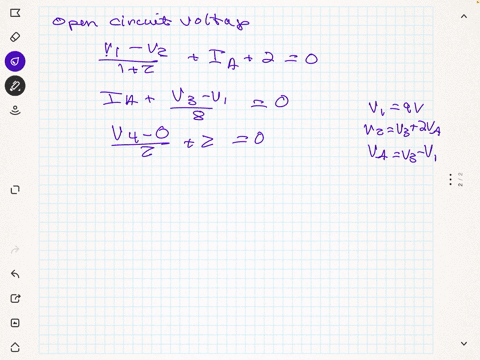 Open circuit voltage
V1 - V2 / 1+2 + IA + 2 = 0
IA + V3 - V1 / 8 = 0
V4 - 0 / 2 + 2 = 0
V1 = 9V
V2 = V3 + 2VA
VA = V3 - V1